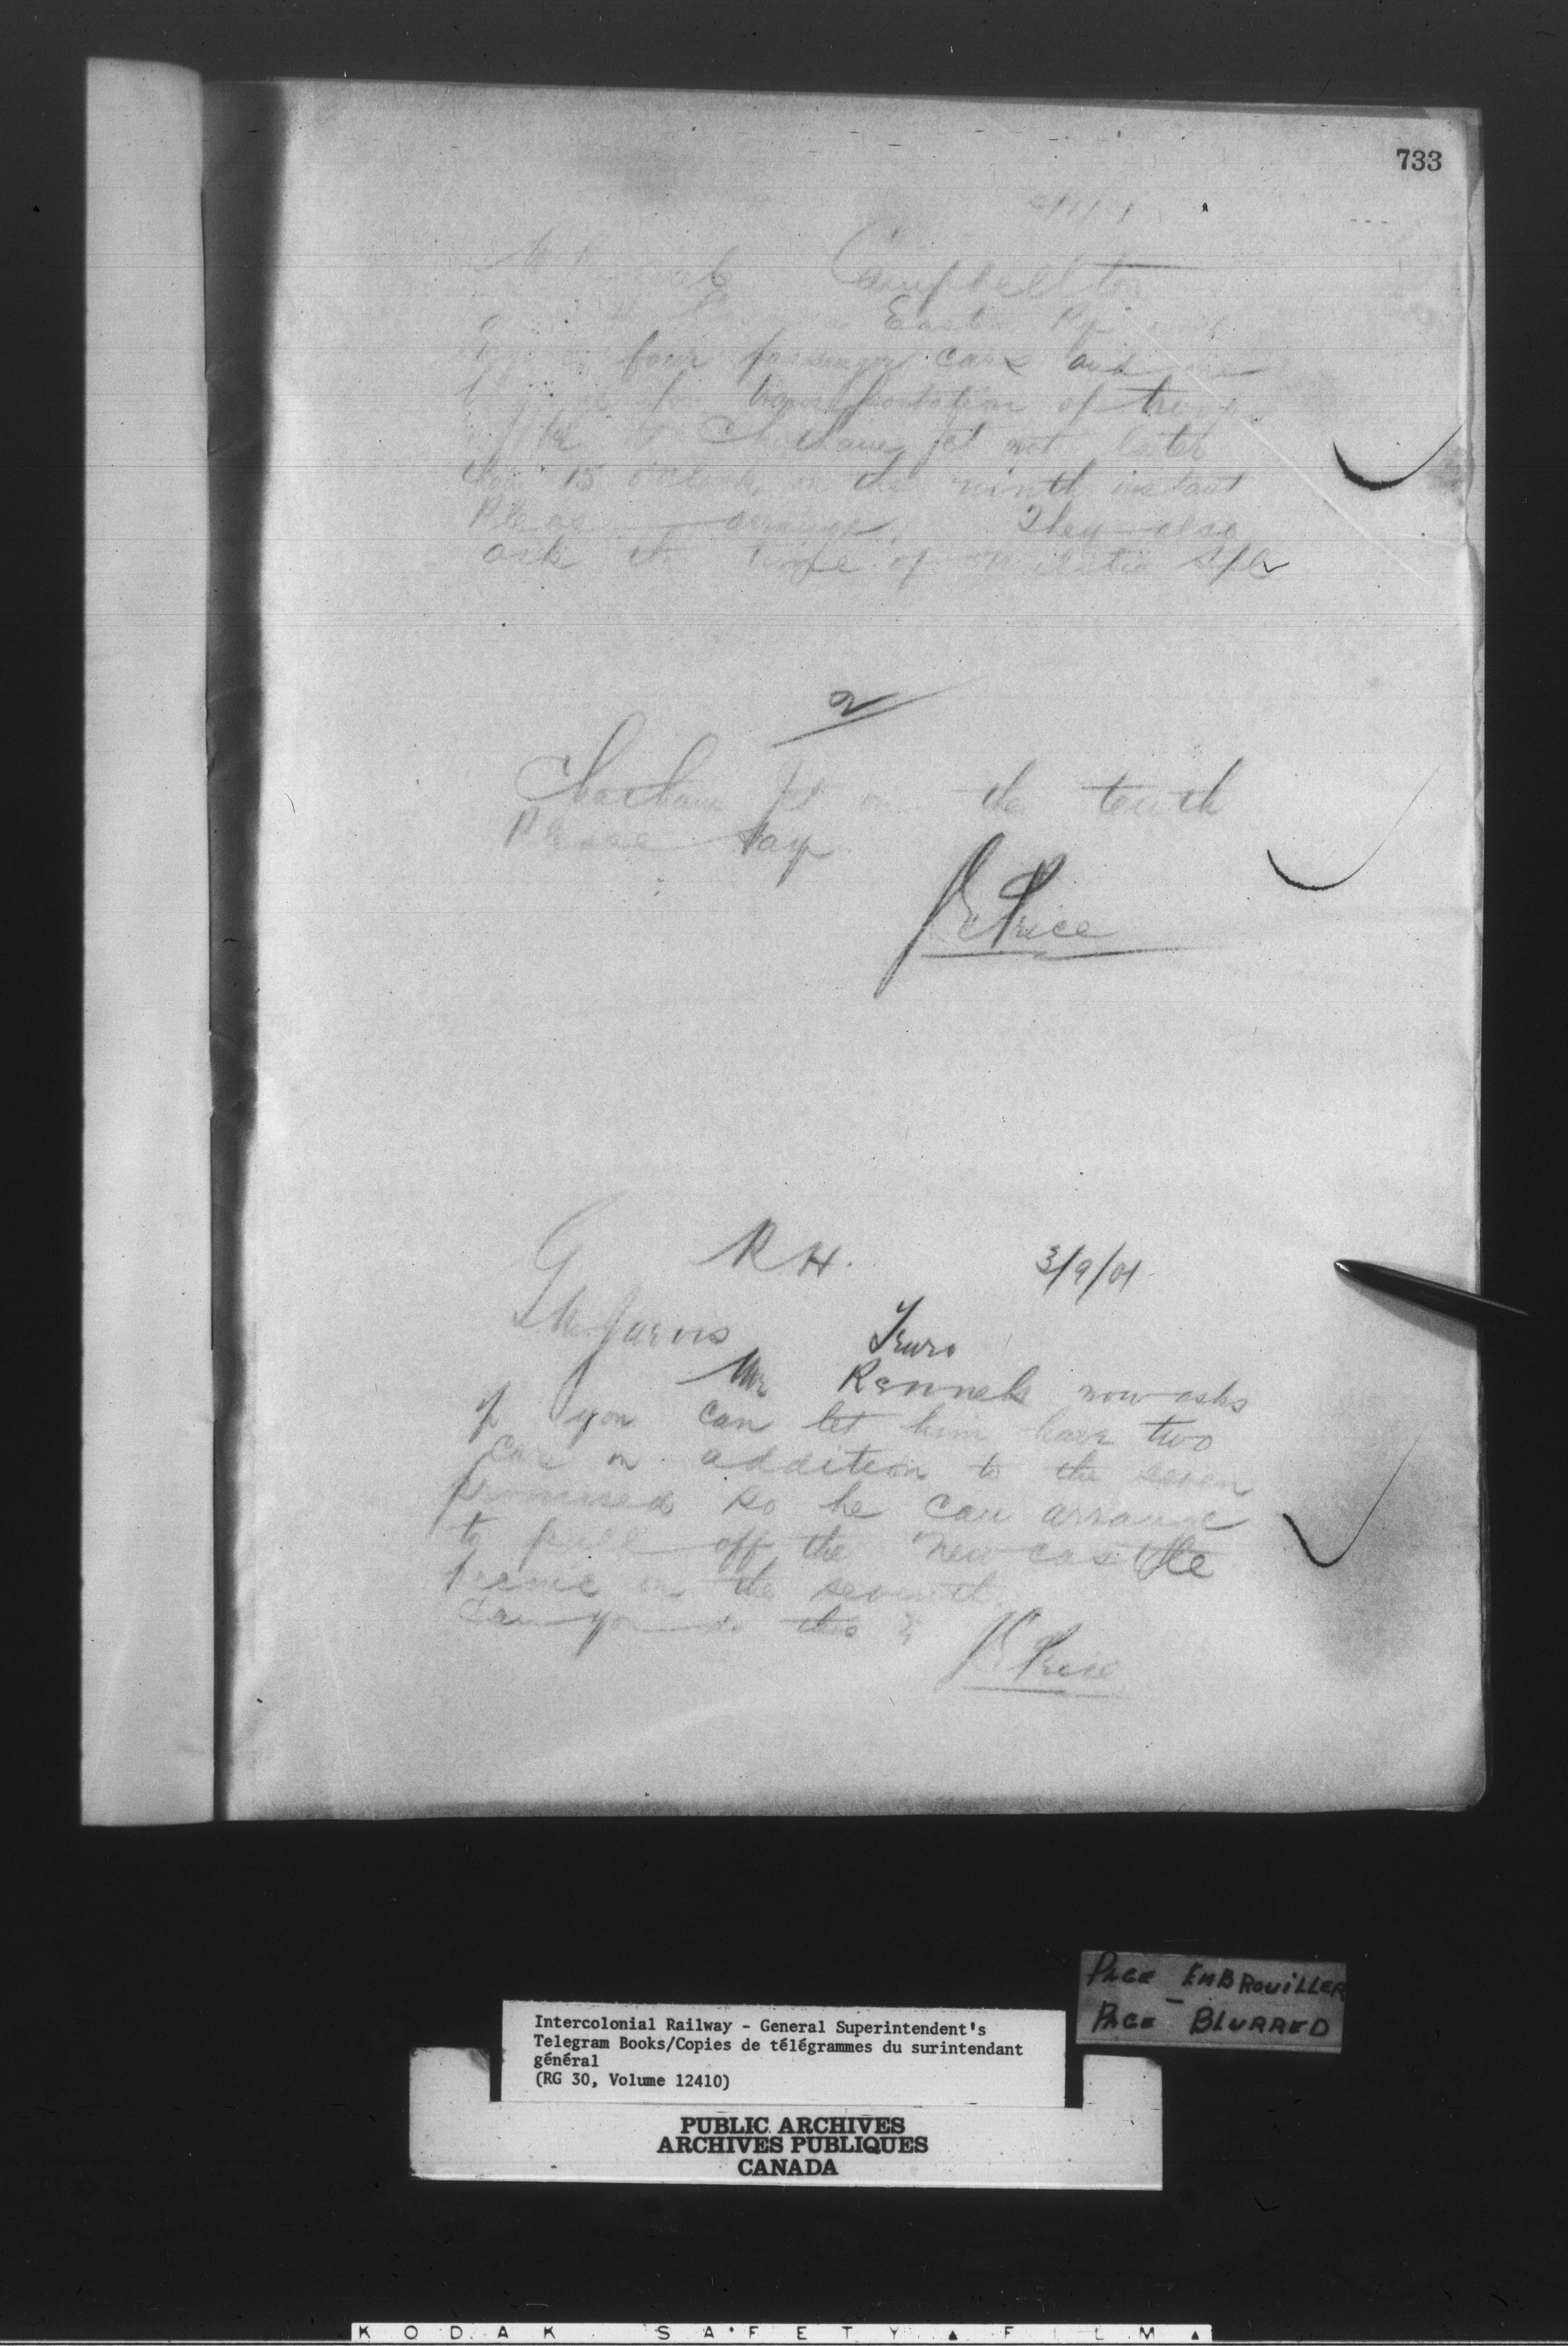 733
Campbellton
Eastern Ry
four passenger cars and one
for transportation of troops
to Chatham Jct not later
than 15 o'clock, on the ninth instant
Please arrange. They also
ask the time of militia spl
2
Chatham Jct on the tenth
Please say.
JE Price
RH. 3/9/01
GM Jarvis Truro
Mr Rennels now asks
if you can let him have two
cars in addition to the seven
promised so he can arrange
to pull off the Newcastle
picnic on the seventh.
Can you do this?
JE Price
PAGE EMBROUILLER
PAGE - BLURRED
Intercolonial Railway - General Superintendent's
Telegram Books/Copies de télégrammes du surintendant
général
(RG 30, Volume 12410)
PUBLIC ARCHIVES
ARCHIVES PUBLIQUES
CANADA
KODAK SAFETY ▲ FILM ▲